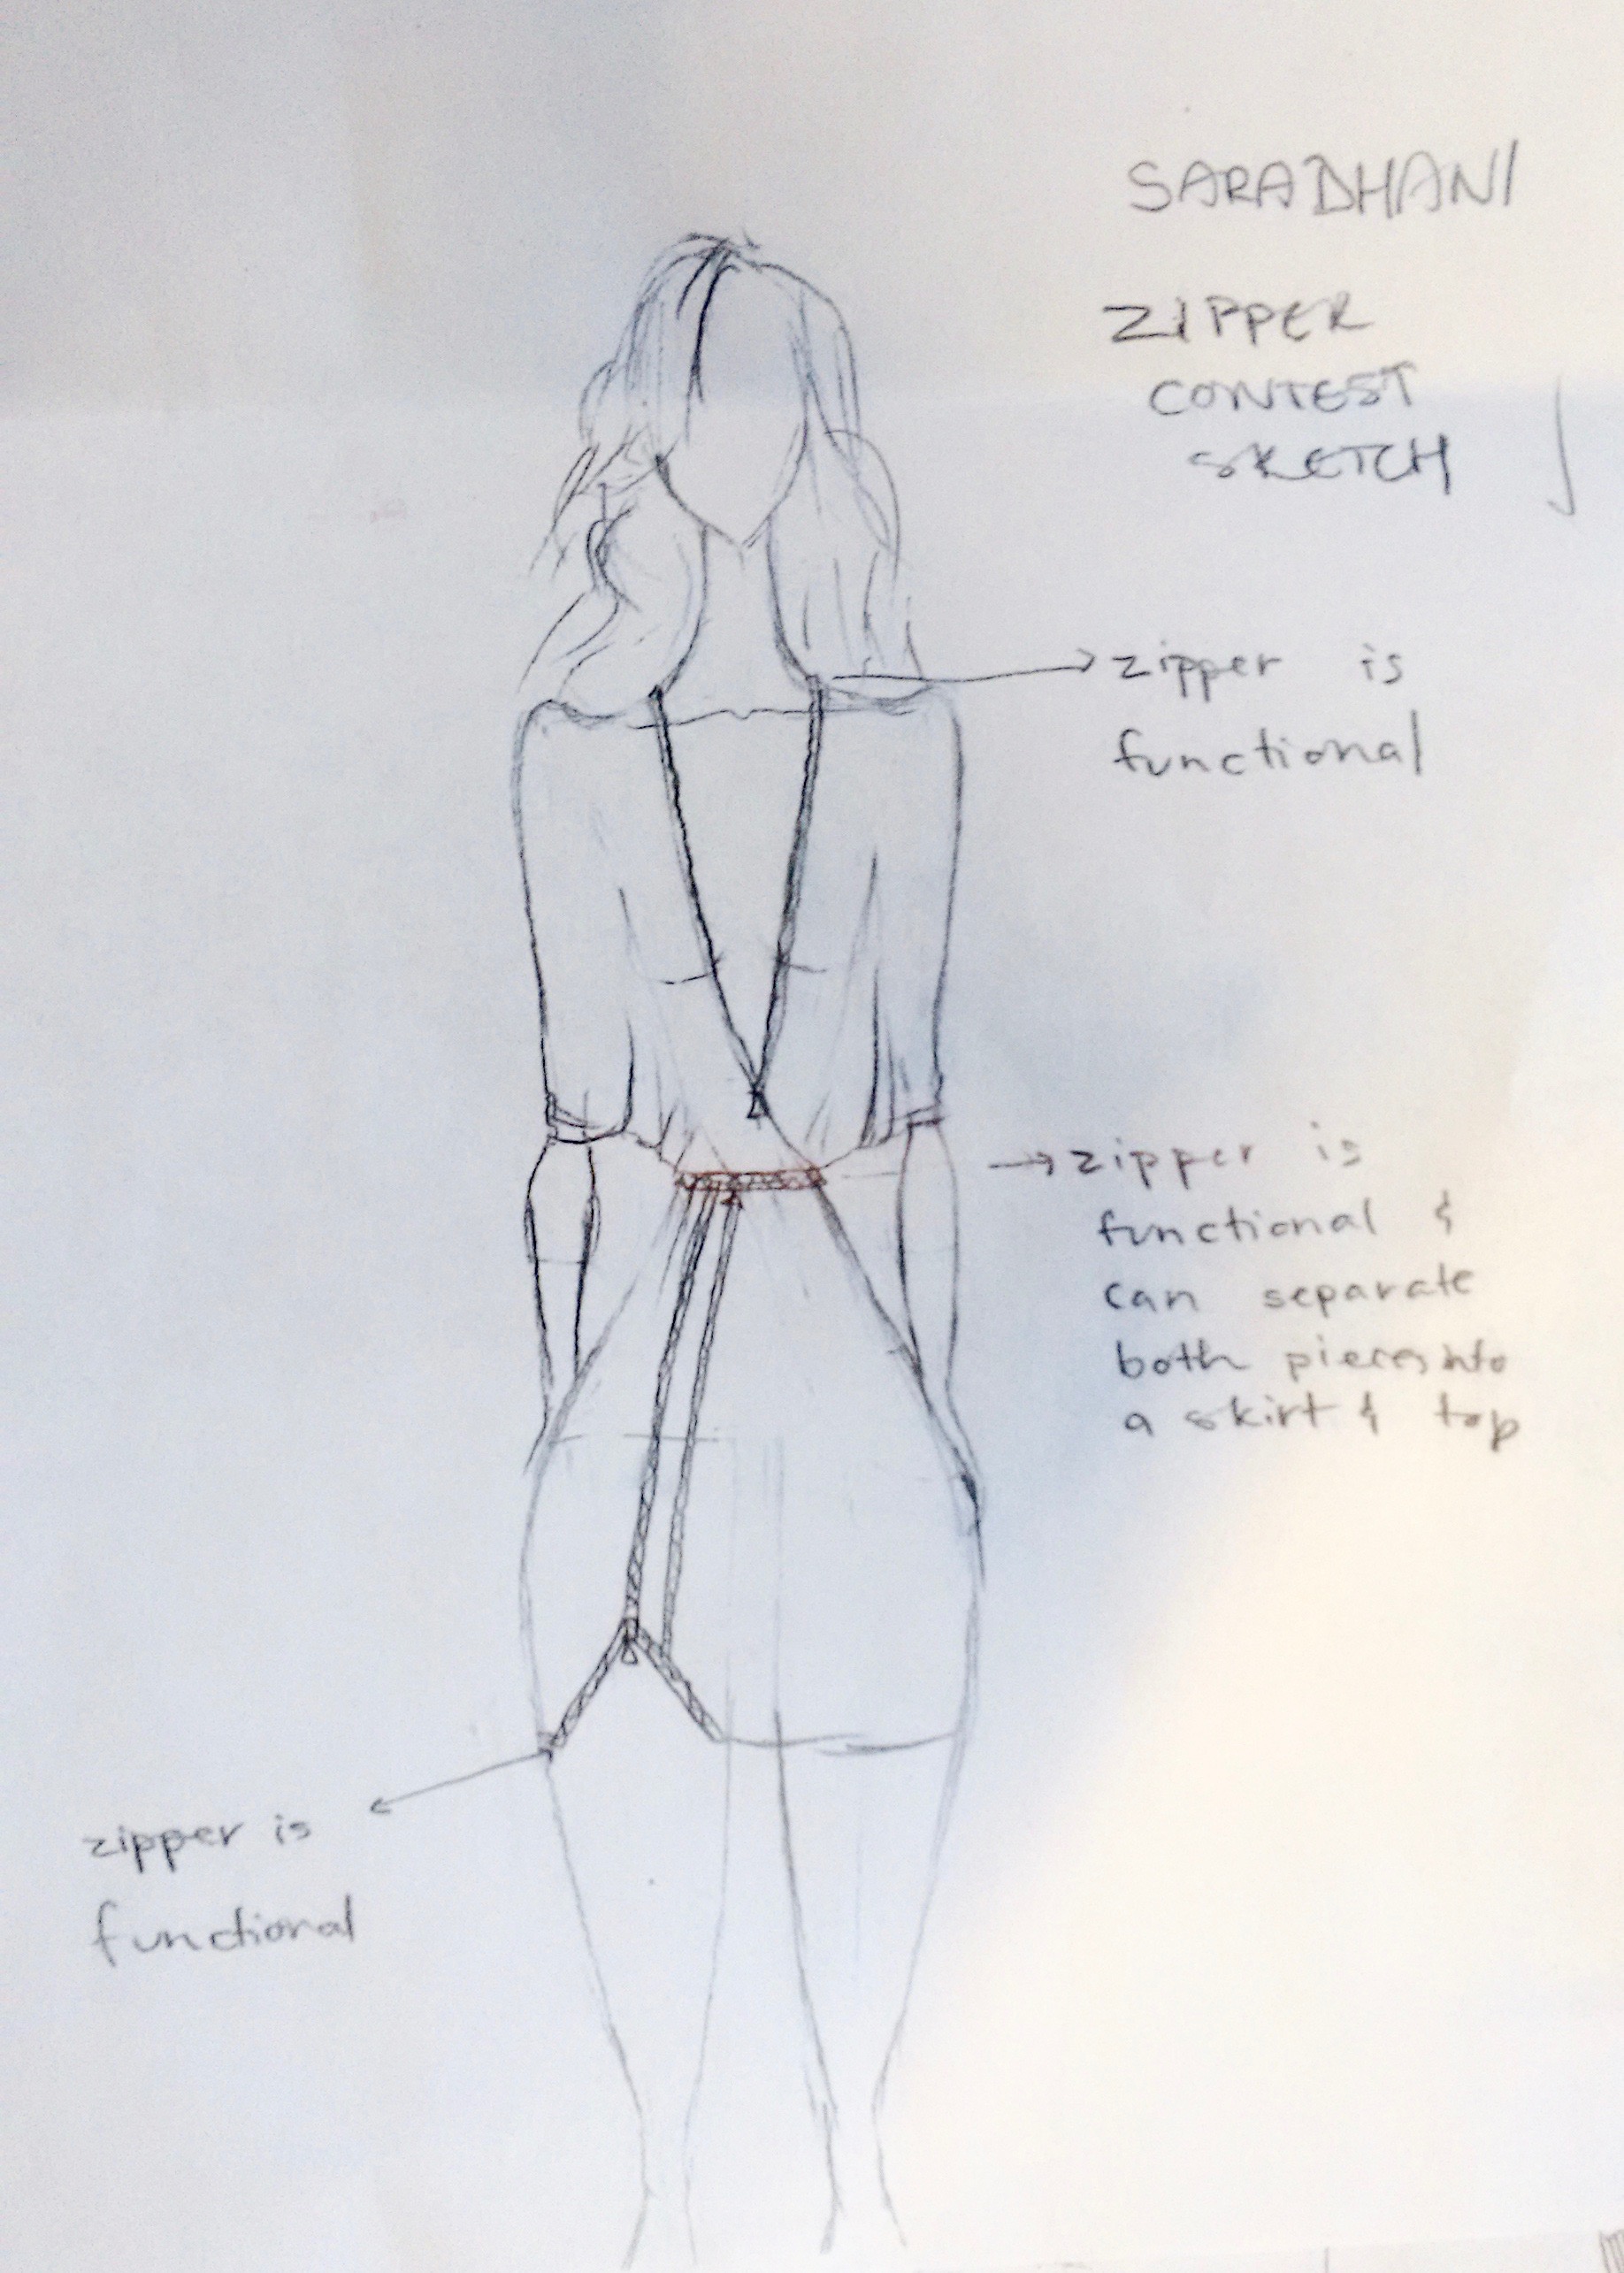 SARADHANI
ZIPPER
CONTEST
SKETCH
zipper is
functional
zipper is
functional &
can separate
both pieces into
a skirt & top
zipper is
functional